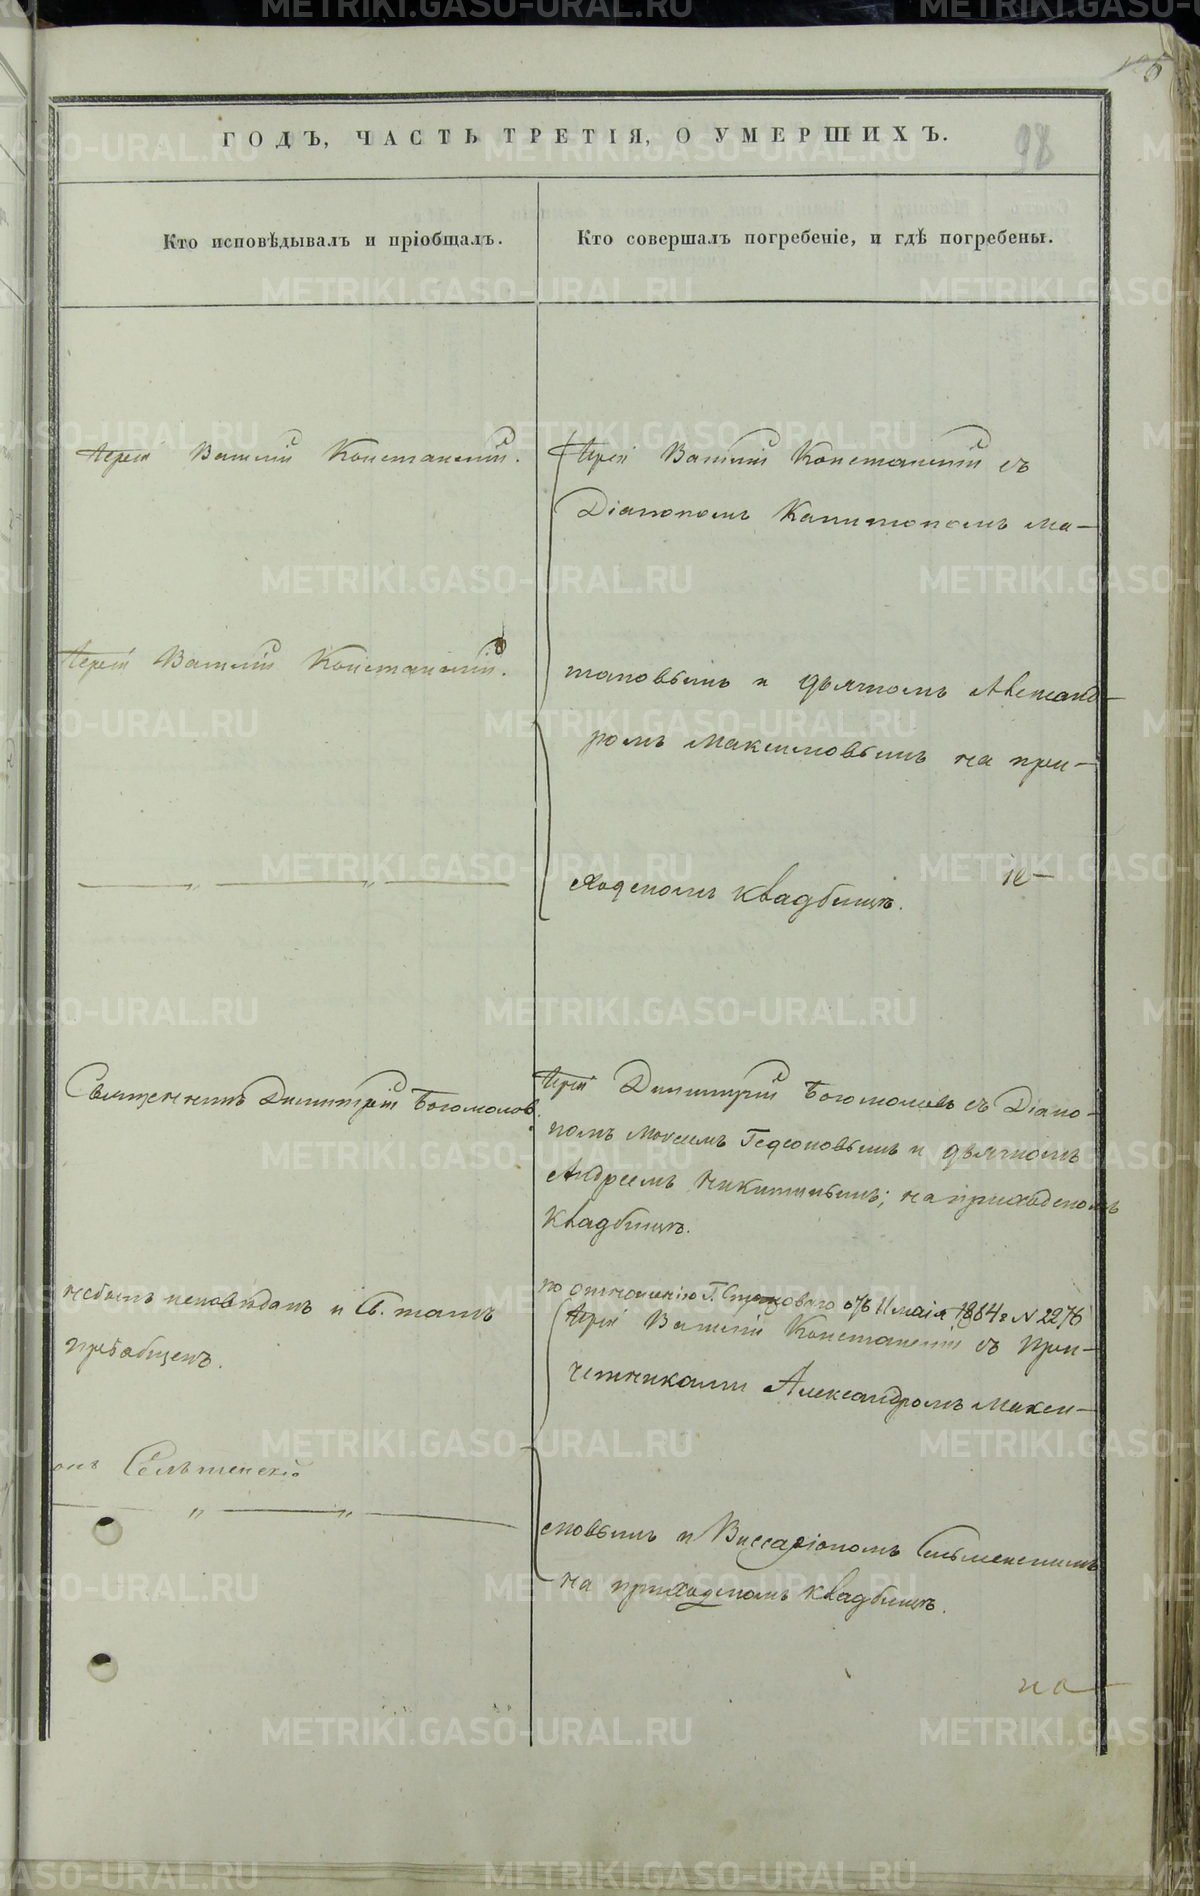 98
ГОДЪ, ЧАСТЬ ТРЕТІЯ, О УМЕРШИХЪ.
Кто исповѣдывалъ и пріобщалъ.
Кто совершалъ погребеніе, и гдѣ погребены.
Іерей Василій Констанскій.
Іерей Василій Констанскій съ
Діакономъ Капитономъ Ма-
Іерей Василій Констанскій.
и дьячкомъ Александ-
ромъ Максимовымъ на при-
ходскомъ кладбищѣ.
Священникъ Димитрій Богомоловъ.
Іерей Димитрій Богомоловъ съ Діако-
номъ Моисеемъ Гедеоновымъ и дьячкомъ
Андреемъ Никитинымъ; на приходскомъ
кладбищѣ.
небылъ исповѣданъ и Св. таинъ
пріобщенъ.
по отношенію Г. отъ 11 маія 1864 г. № 2276
Іерей Василій Констанскій съ при-
четниками Александромъ Макси-
мовымъ и Виссаріономъ Сельменскимъ
на приходскомъ кладбищѣ.
на
METRIKI.GASO-URAL.RU